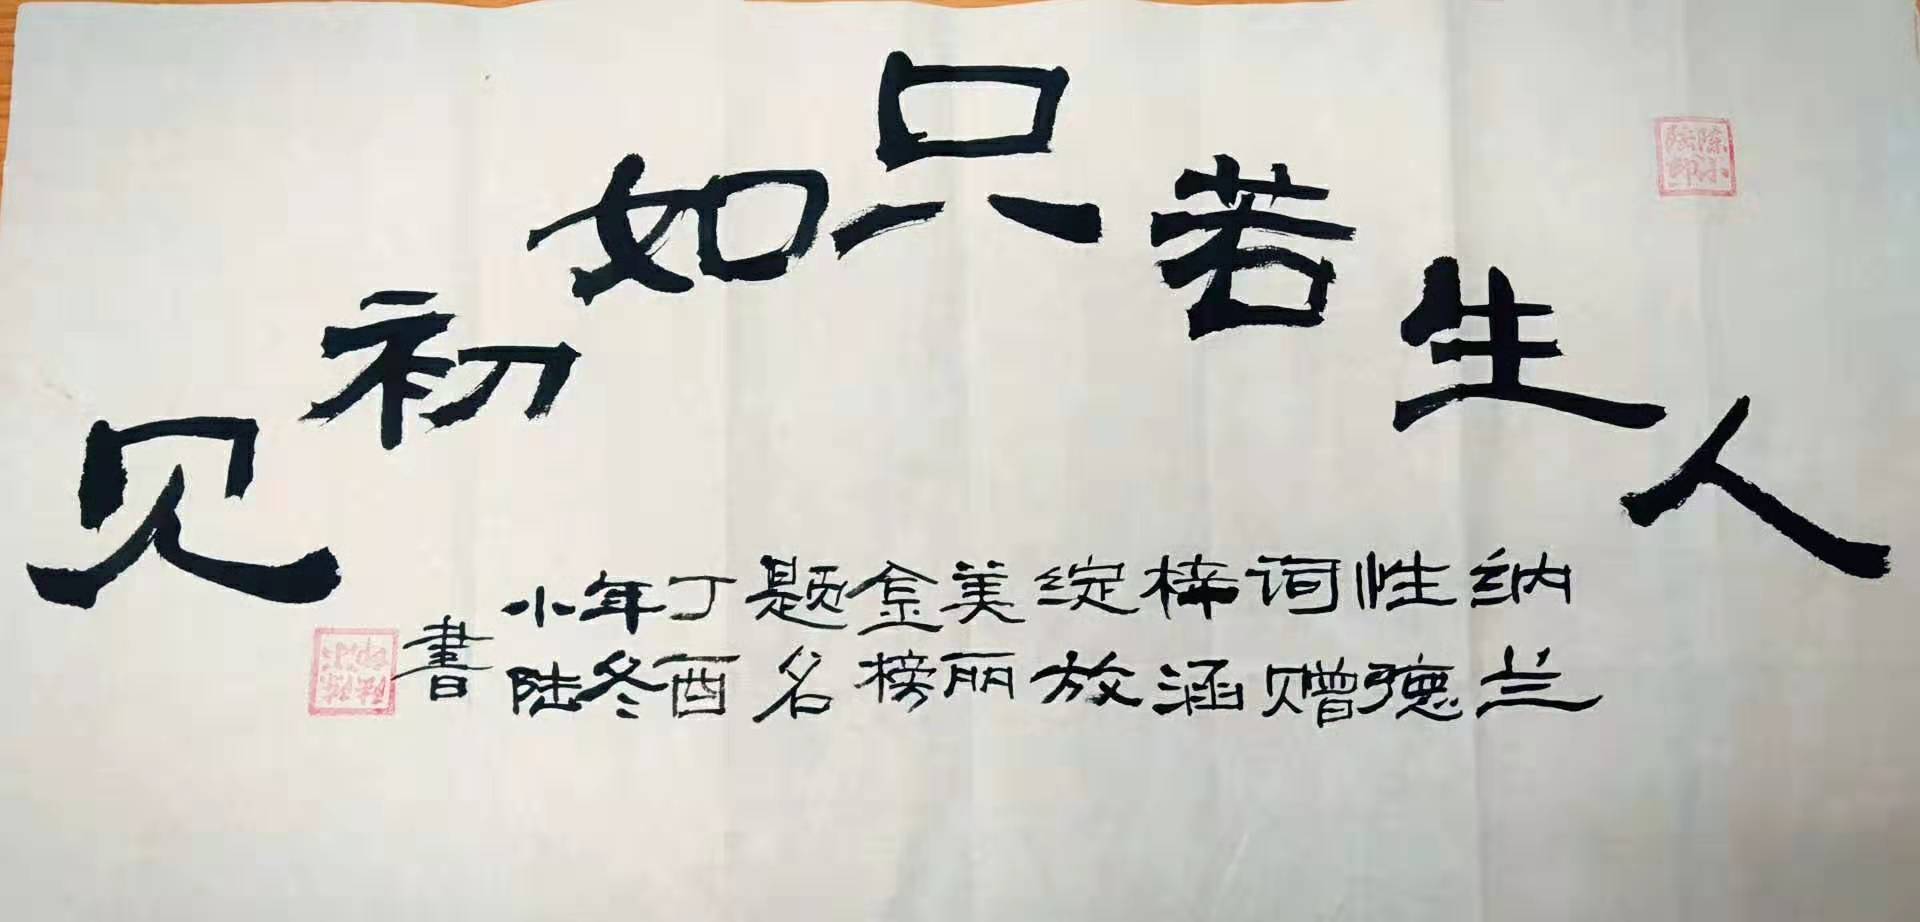 陈小陆印
人生若只如初见
纳兰
性德
词赠
梓涵
绽放
美丽
金榜
题名
丁酉
年冬
小陆
書
陈小陆印